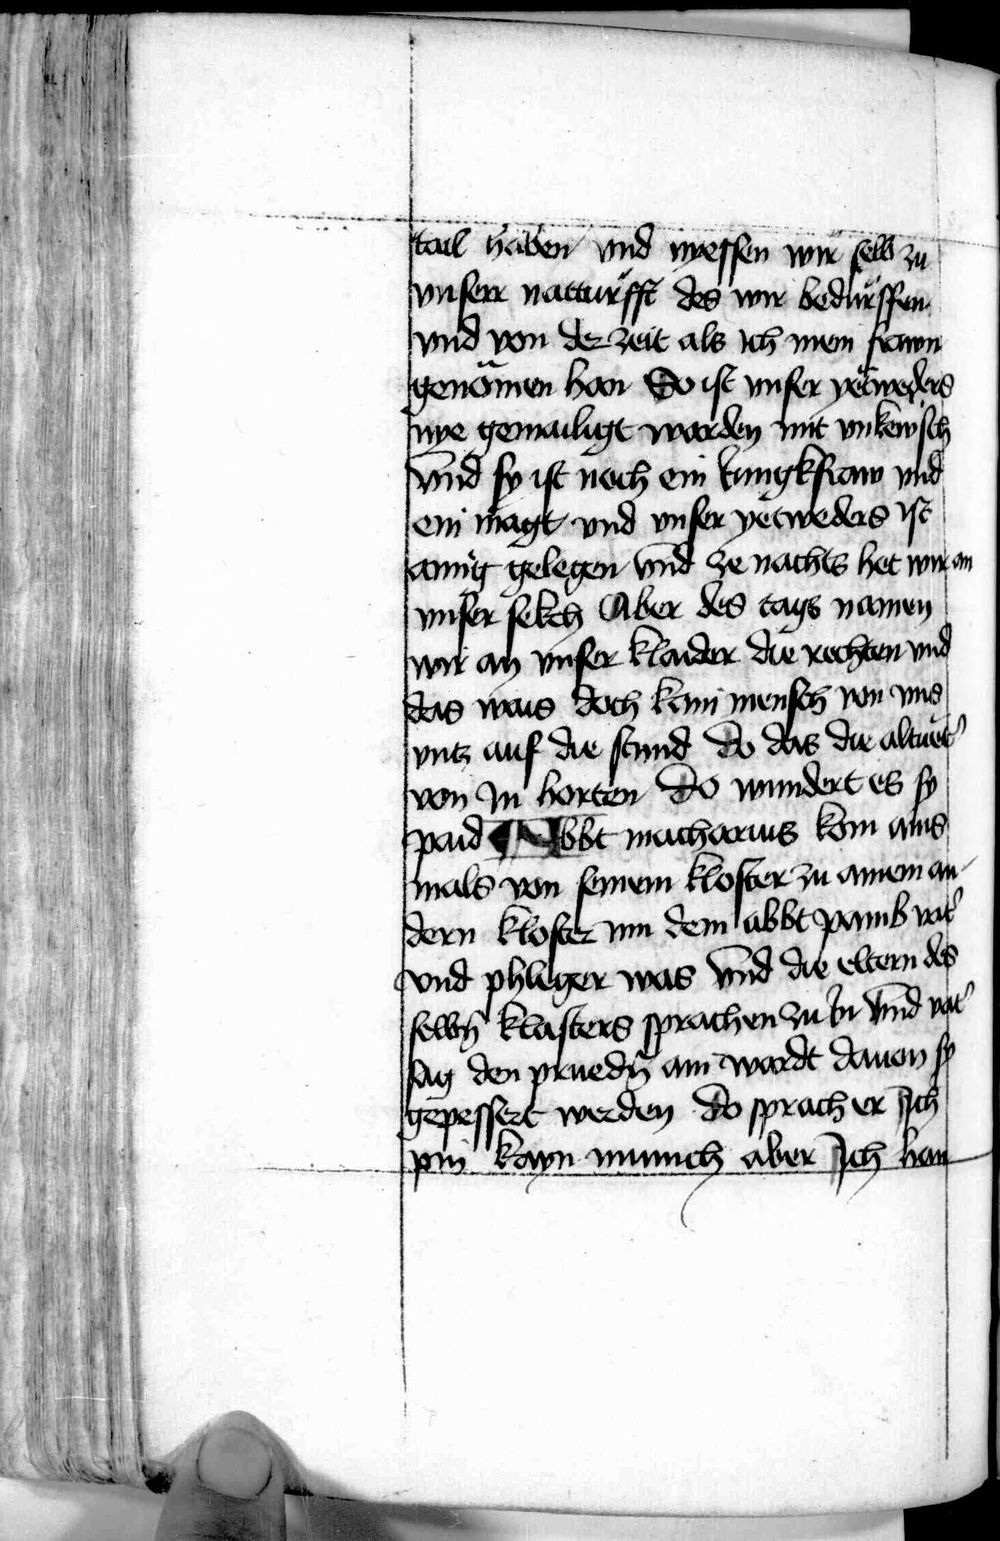 tail haben vnd nyessen wir selb zu
vnserr natturfft des wir bedurffen
vnd von der zeit als ich mein frawn
genömen han So ist vnser yetweders
nye gemailigt worden mit vnkewsch
vnd sy ist noch ein Iungkfraw vnd
ein magt vnd vnser yetweders ist
ainig gelegen vnd ze nachts het wir an
vnser sekch Aber des tags namen
wir an vnser klaider die rechten vnd
das wais doch kain mensch von vns
vntz auf die stund do das die altuet'
von In horten Do wundert es sy
paid Abbt macharius kom ains
mals von seinem kloster zu ainem an
dern kloster inn dem abbt pamb vat'
vnd phleger was Vnd die eltern des
selbn̄ klasters sprachen zu In Vnd vat'
sag den pruedn̄ ain wordt dauon sy
gepessert werden Do sprach er Ich
pin kayn munich aber Ich han